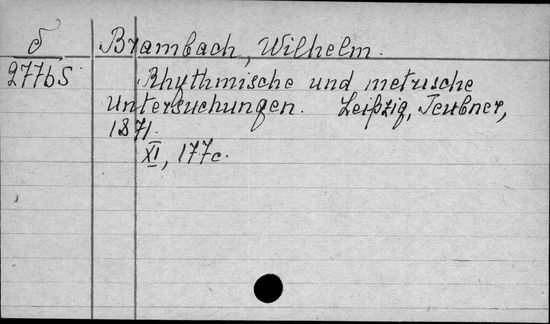 δ Brambach, Wilhelm.
277b5 Rhythmische und metrische
Untersuchungen. Leipzig, Teubner,
1871.
XI, 177c.